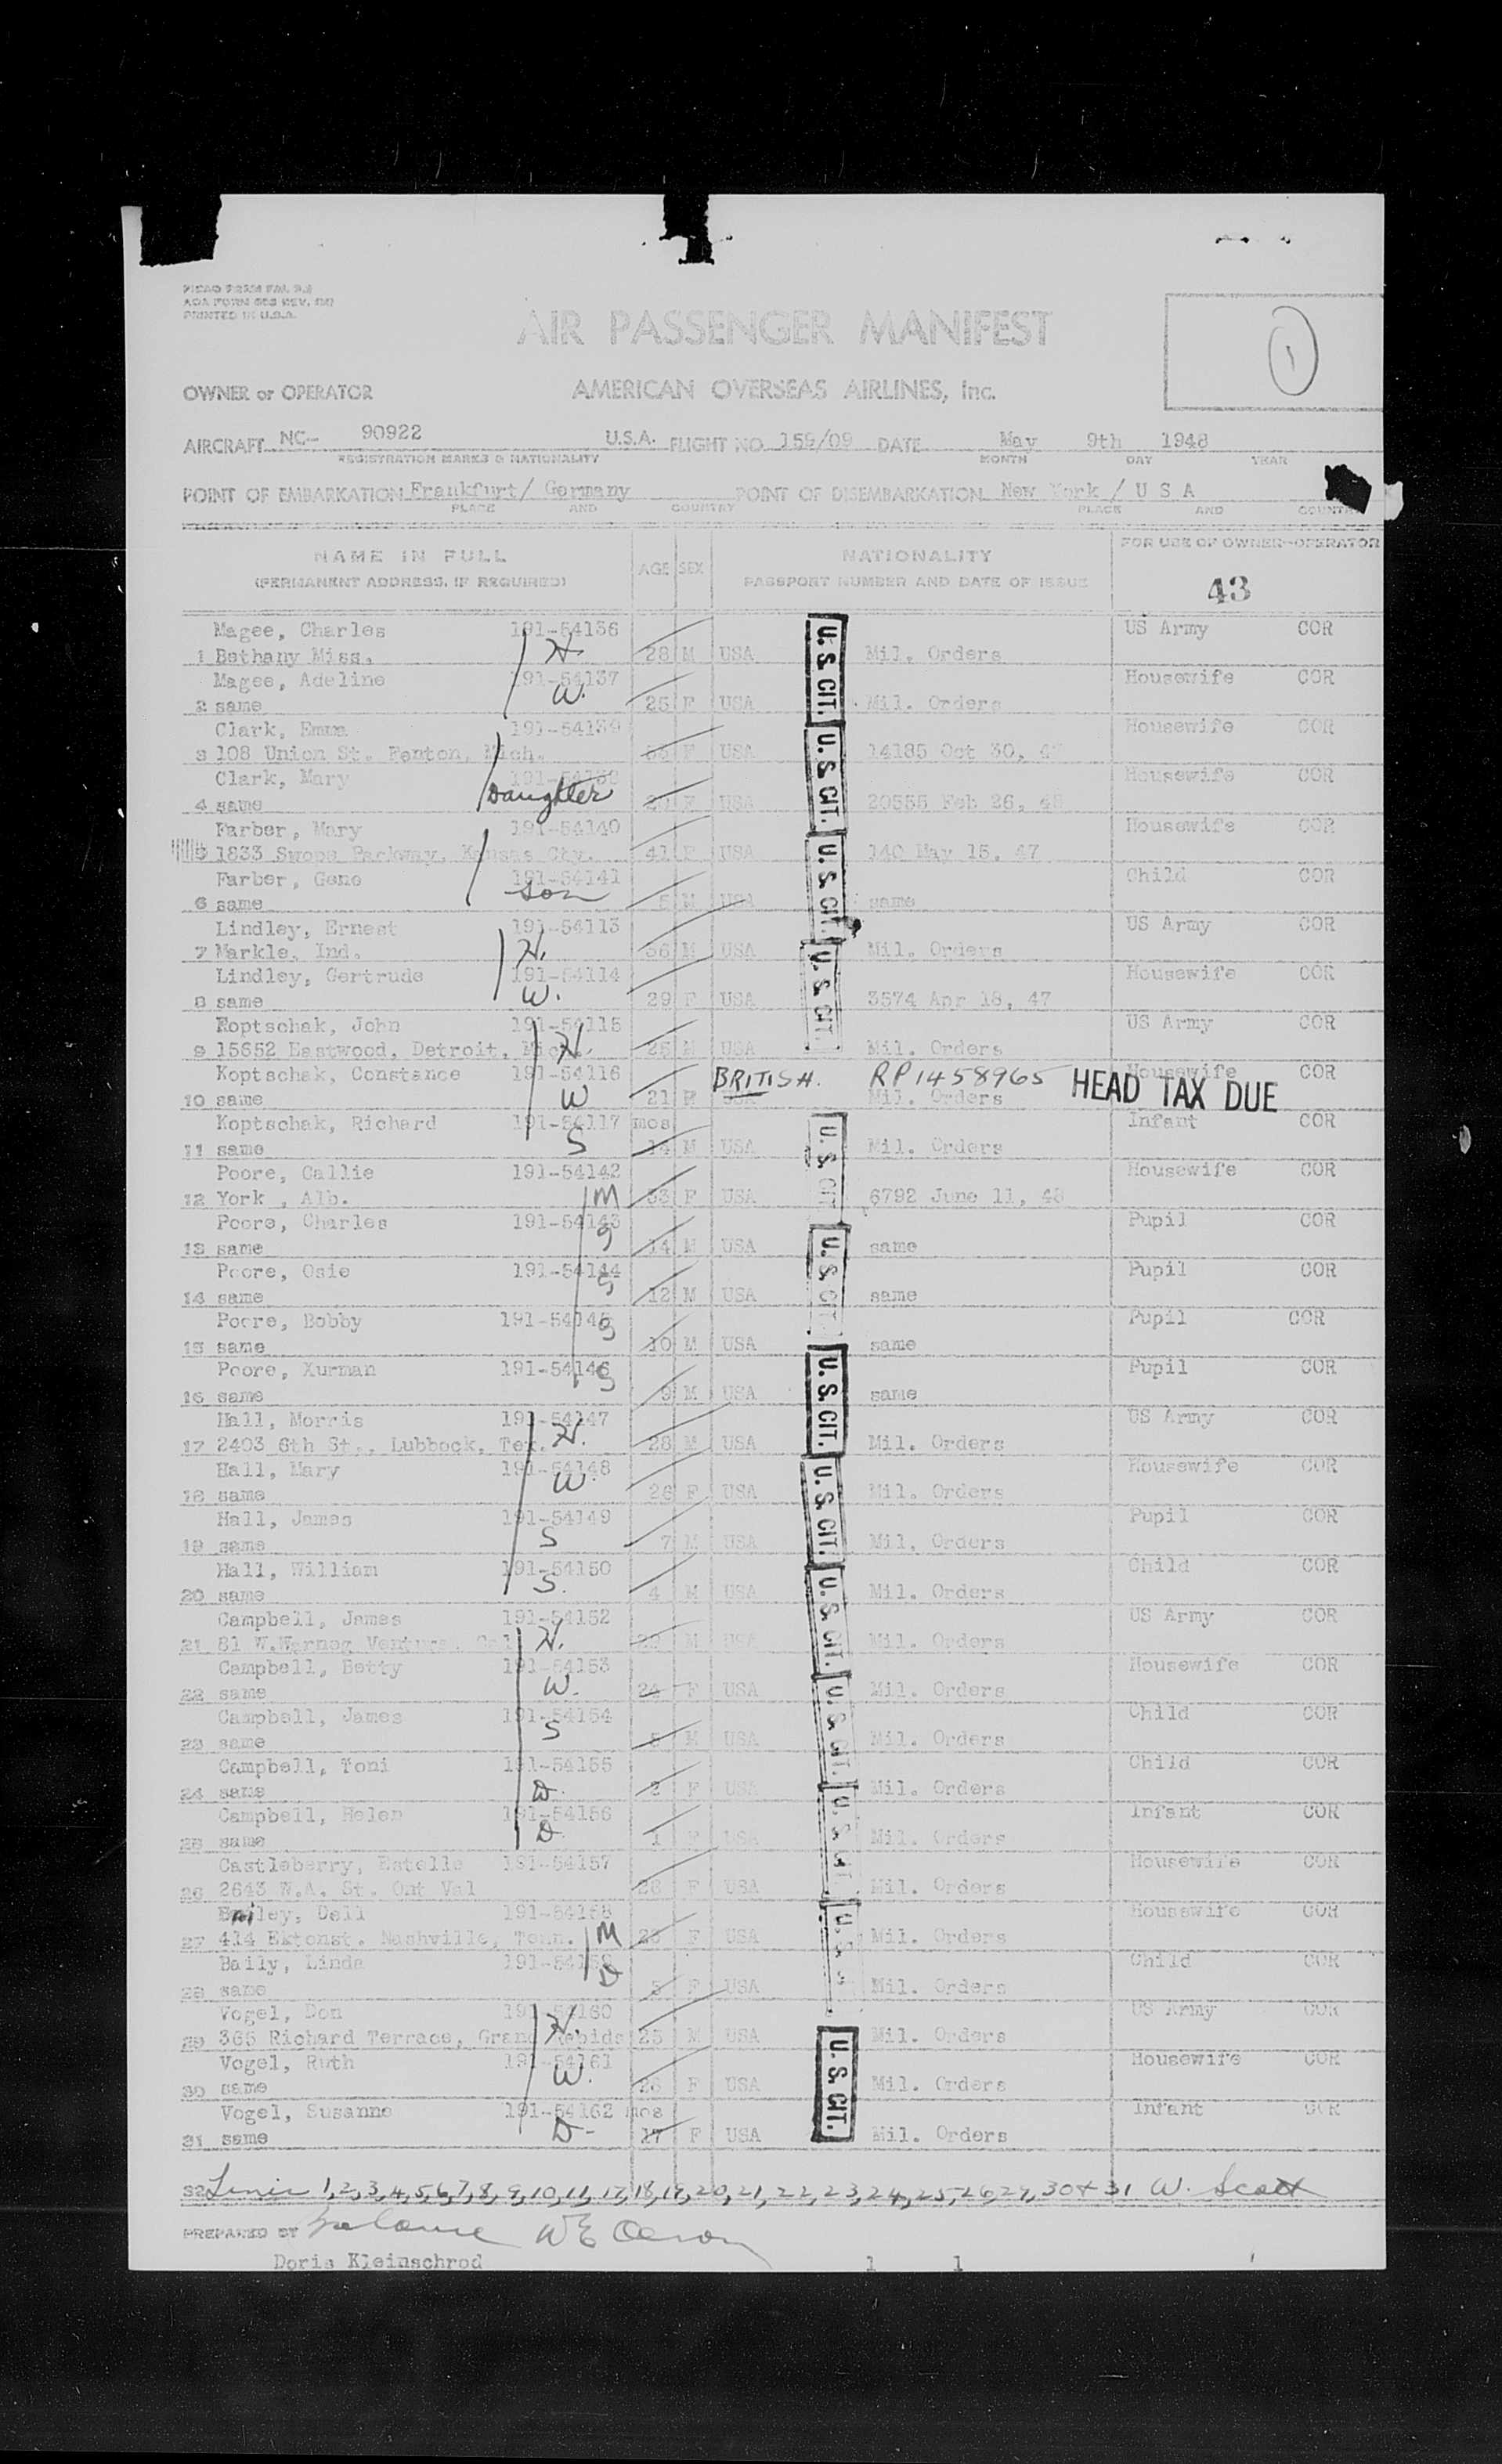 PICAO FORM FAL 2.2
AOA FORM 608 REV.
PRINTED IN U.S.A.
AIR PASSENGER MANIFEST
1
OWNER or OPERATOR AMERICAN OVERSEAS AIRLINES, Inc.
AIRCRAFT NC- 90922 U.S.A. FLIGHT NO. 159/09 DATE May 9th 1948
REGISTRATION MARKS & NATIONALITY MONTH DAY YEAR
POINT OF EMBARKATION Frankfurt/ Germany POINT OF DISEMBARKATION New York / U S A
PLACE AND COUNTRY PLACE AND COUNTRY
NAME IN FULL AGE SEX NATIONALITY FOR USE OF OWNER-OPERATOR
(PERMANENT ADDRESS, IF REQUIRED) PASSPORT NUMBER AND DATE OF ISSUE 43
Magee, Charles 191-54136 US Army COR
1 Bethany Miss. H. 28 M USA U.S.CIT. Mil. Orders
Magee, Adeline 191-54137 Housewife COR
2 same W. 25 F USA Mil. Orders
Clark, Emma 191-54139 Housewife COR
3 108 Union St. Fenton, Mich. F USA U.S.CIT. 14185 Oct 30, 47
Clark, Mary Housewife COR
4 same Daughter F USA 20555 Feb 26, 48
Farber, Mary 191-54140 Housewife COR
5 1833 Swope Parkway, Kansas Cty. 41 F USA U.S.CIT. 140 May 15, 47
Farber, Gene 191-54141 Child COR
6 same son 5 M USA same
Lindley, Ernest 191-54113 US Army COR
7 Markle, Ind. H. 36 M USA U.S.CIT. Mil. Orders
Lindley, Gertrude 191-54114 Housewife COR
8 same W. 29 F USA 3574 Apr 18, 47
Koptschak, John 191-54115 US Army COR
9 15652 Eastwood, Detroit, Mich. H. 25 M USA Mil. Orders
Koptschak, Constance 191-54116 BRITISH. RP1458965 Housewife COR
10 same W 21 F USA Mil. Orders HEAD TAX DUE
Koptschak, Richard 191-54117 mos Infant COR
11 same S 14 M USA U.S.CIT Mil. Orders
Poore, Callie 191-54142 Housewife COR
12 York , Alb. M 33 F USA 6792 June 11, 46
Poore, Charles 191-54143 Pupil COR
13 same S 14 M USA U.S.CIT same
Poore, Osie 191-54144 Pupil COR
14 same S 12 M USA same
Poore, Bobby 191-54145 Pupil COR
15 same S 10 M USA same
Poore, Xurman 191-54146 Pupil COR
16 same S 9 M USA U.S.CIT. same
Hall, Morris 191-54147 US Army COR
17 2403 6th St., Lubbock, Tex. H. 28 M USA Mil. Orders
Hall, Mary 191-54148 Housewife COR
18 same W. 26 F USA U.S.CIT. Mil. Orders
Hall, James 191-54149 Pupil COR
19 same S 7 M USA Mil. Orders
Hall, William 191-54150 Child COR
20 same S. 4 M USA U.S.CIT. Mil. Orders
Campbell, James 191-54152 US Army COR
21 81 W.Warneg Ventura, Cal H. M USA Mil. Orders
Campbell, Betty 191-54153 Housewife COR
22 same W. 24 F USA U.S.CIT. Mil. Orders
Campbell, James 191-54154 Child COR
23 same S M USA Mil. Orders
Campbell, Toni 191-54155 Child COR
24 same D. 2 F USA Mil. Orders
Campbell, Helen 191-54156 Infant COR
25 same D. 1 F USA U.S. Mil. Orders
Castleberry, Estelle 191-54157 Housewife COR
26 2643 W.A. St. Ont Val 26 F USA Mil. Orders
Bailey, Dell 191-54158 Housewife COR
27 414 Ektonst. Nashville, Tenn. M 23 F USA U.S. Mil. Orders
Baily, Linda Child COR
28 same D F USA Mil. Orders
Vogel, Don 191-54160 US Army COR
29 365 Richard Terrace, Grand Rapids H. 25 M USA Mil. Orders
Vogel, Ruth 191-54161 Housewife COR
30 same W. 26 F USA U.S.CIT. Mil. Orders
Vogel, Susanne 191-54162 mos Infant COR
31 same D- 17 F USA Mil. Orders
32 Lines 1,2,3,4,5,6,7,8,9,10,11,17,18,19,20,21,22,23,24,25,26,29,30+31 W. Scott
PREPARED BY
Doris Kleinschrod 1 1